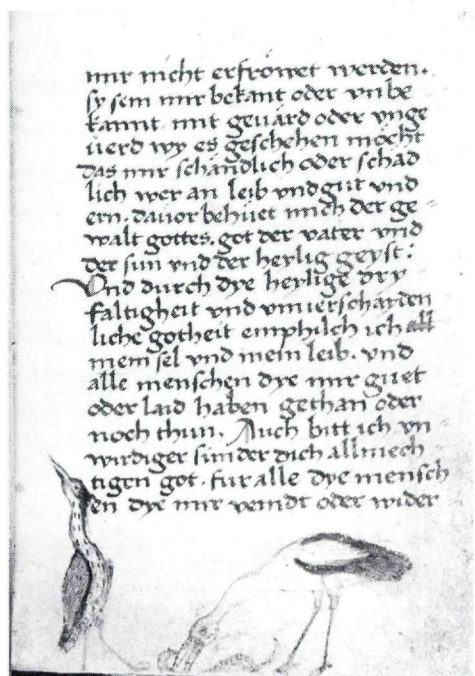 mir nicht erfröwet werden.
sy sein mir bekant oder vnbe
kannt. mit geuärd oder vnge
uerd wy es geschehen möcht
das mir schändlich oder schad
lich wer an leib vnd gut vnd
ern. dauor behüet mich der ge
walt gottes. got der vater vnd
der sun vnd der heylig geyst:
Vnd durch dye heylige dry
faltigheit vnd vnuerschaiden
liche gotheit emphilch ich all
mein sel vnd mein leib. vnd
alle menschen dye mir guet
oder laid haben gethan oder
noch thun. Auch bitt ich vn
wirdiger sünder dich allmech
tigen got. fur alle dye mensch
en dye mir veindt oder wider